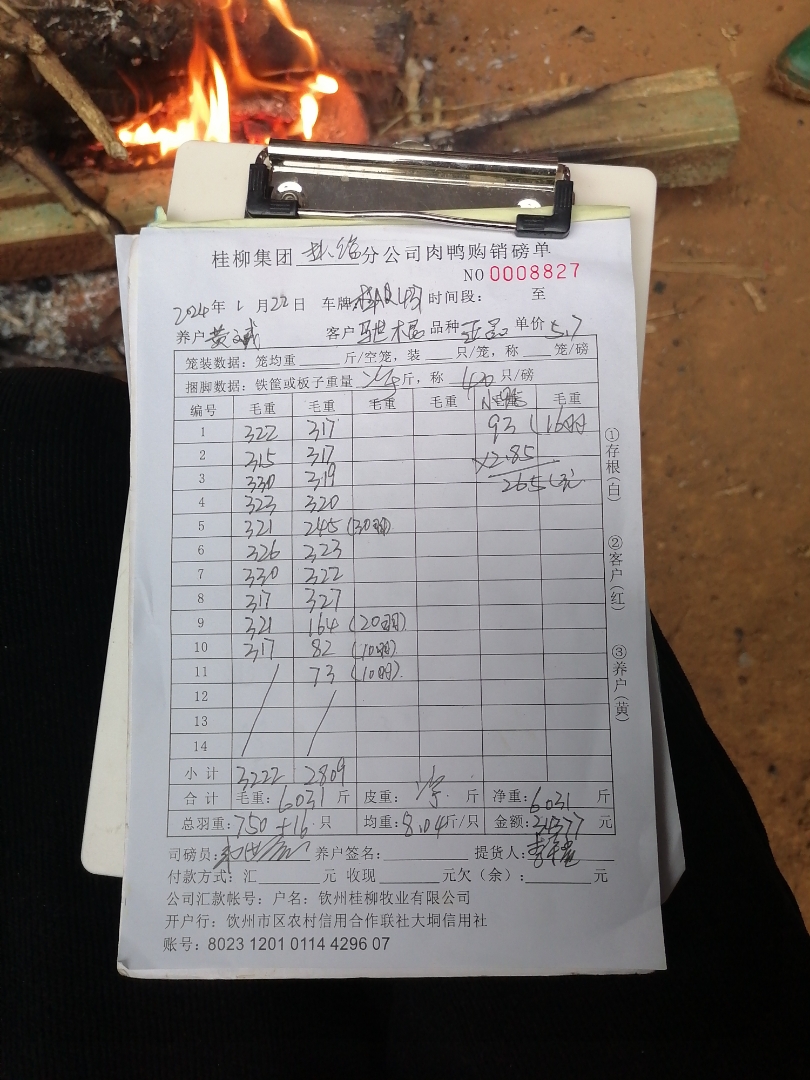 桂柳集团 分公司肉鸭购销磅单
NO 0008827
2024年 1月22日 车牌 时间段： 至
养户 黄 客户 品种 单价 5.7
笼装数据：笼均重 斤/空笼，装 只/笼，称 笼/磅
捆脚数据：铁筐或板子重量 斤，称 40 只/磅
编号 毛重 毛重 毛重 毛重 毛重 毛重
1 322 317 93 (16羽
2 315 317 ×2.85
3 330 319 265(元
4 323 320
5 321 245 (30羽)
6 326 323
7 330 322
8 317 327
9 321 164 (20羽)
10 317 82 (10羽)
11 73 (10羽)
12
13
14
小计 3222 2809
合计 毛重：6031 斤 皮重： 斤 净重：6031 斤
总羽重：750+16 只 均重：8.04斤/只 金额：34377 元
司磅员： 养户签名： 提货人：
付款方式：汇 元 收现 元欠（余）： 元
公司汇款帐号：户名：钦州桂柳牧业有限公司
开户行：钦州市区农村信用合作联社大垌信用社
账号：8023 1201 0114 4296 07
①存根（白）
②客户（红）
③养户（黄）